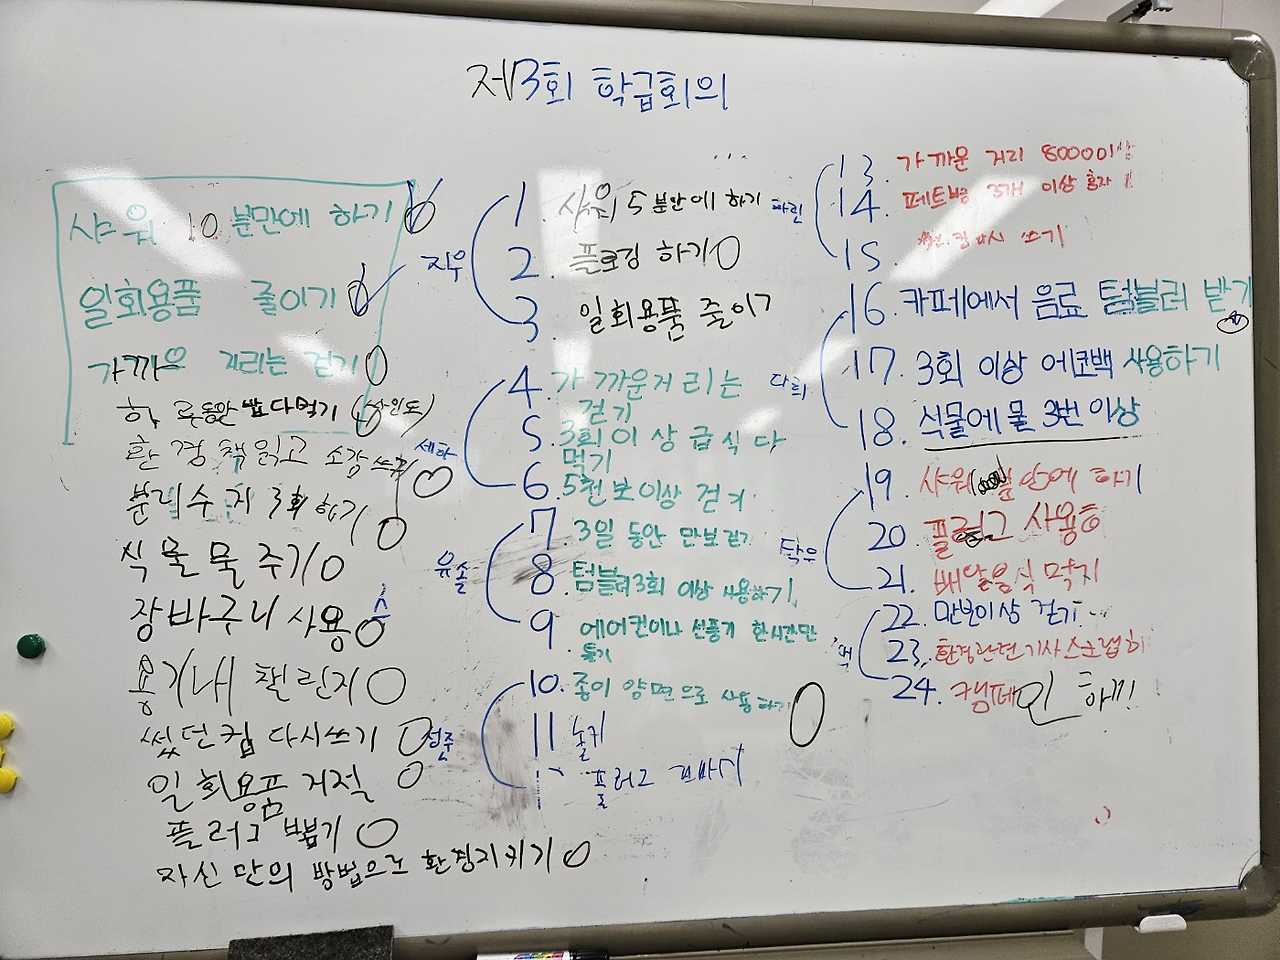 제3회 학급회의
샤워 10분만에 하기
일회용품 줄이기
가까운 거리는 걷기
하루동안 밥 다먹기
환경책 읽고 소감쓰기
분리수거 3회 하기
식물 물 주기
장바구니 사용
용기내 챌린지
썼던 컵 다시쓰기
일회용품 거절
플러그 뽑기
자신만의 방법으로 환경지키기
지우
1. 샤워 5분안에 하기
2. 플로깅 하기
3. 일회용품 줄이기
세하
4. 가까운거리는
걷기
5. 3회이상 급식 다
먹기
6. 5천보이상 걷기
유솔
7. 3일 동안 만보걷기
8. 텀블러 3회 이상 사용하기
9. 에어컨이나 선풍기 한시간만
틀기
성준
10. 종이 양면으로 사용하기
11
플러그
13. 가까운 거리 8000이상
14. 페트병 3개 이상
15. 컵 다시 쓰기
16. 카페에서 음료 텀블러 받기
17. 3회 이상 에코백 사용하기
18. 식물에 물 3번 이상
19. 샤워 분안에 하기
20. 플러그 사용
21. 배달음식
22. 만보이상 걷기
23. 환경관련기사스크랩하
24. 캠페인 하기!